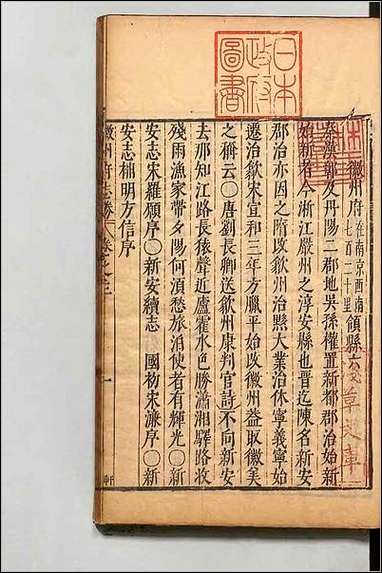 日本
政府
圖書
徽州府在南京西南七百二十里領縣六
秦漢鄣及丹陽二郡地吳孫權置新都郡治始新
始新者今浙江嚴州之淳安縣也晋迄陳名新安
郡治亦因之隋改歙州治黟大業治休寧義寧始
遷治歙宋宣和三年方臘平始改徽州益取徽美
之稱云〇唐劉長卿送歙州康判官詩不向新安
去那知江路長猿聲近廬霍水色勝瀟湘驛路收
殘雨漁家帶夕陽何湏愁旅泊使者有輝光〇新
安志宋羅願序〇新安續志 國初宋濂序〇新
安志 明方信序
徽州府志勝 卷之
一